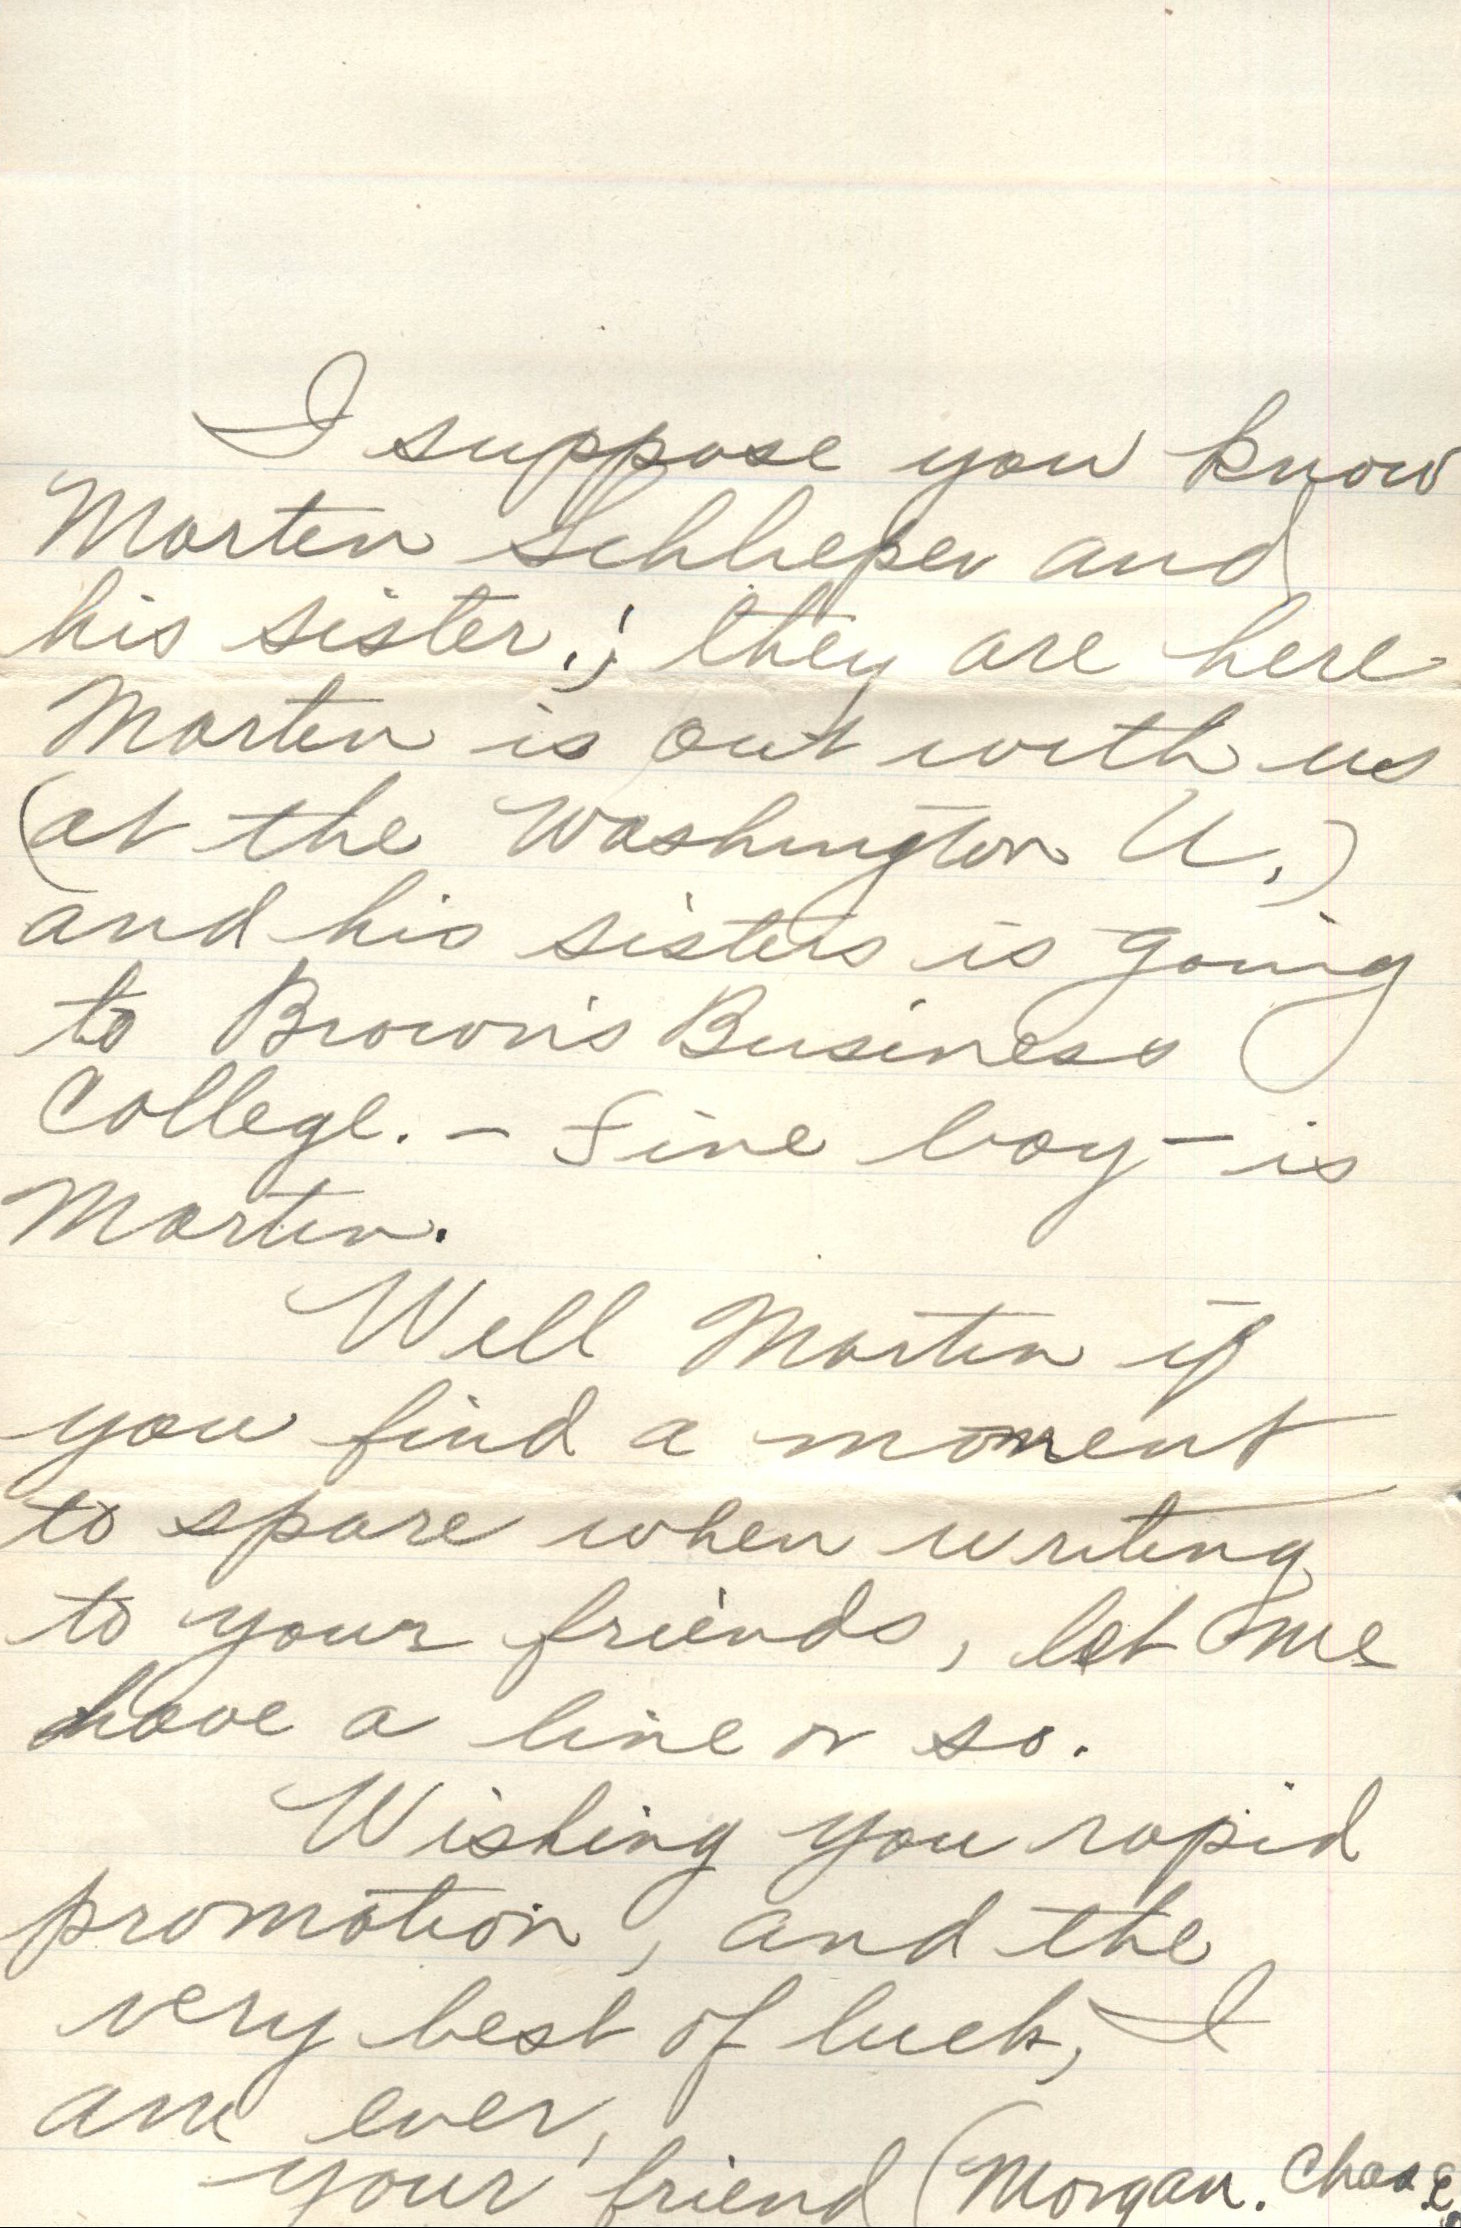 I suppose you know
Morten Schlieper and
his sister.; they are here
Morten is out with us
(at the Washington U.)
and his sisters is going
to Brown's Business
College. – Fine boy – is
Morten.
Well Morten if
you find a moment
to spare when writing
to your friends, let me
have a line or so.
Wishing you rapid
promotion, and the
very best of luck, I
am ever,
your friend (Morgan. Chas. E.